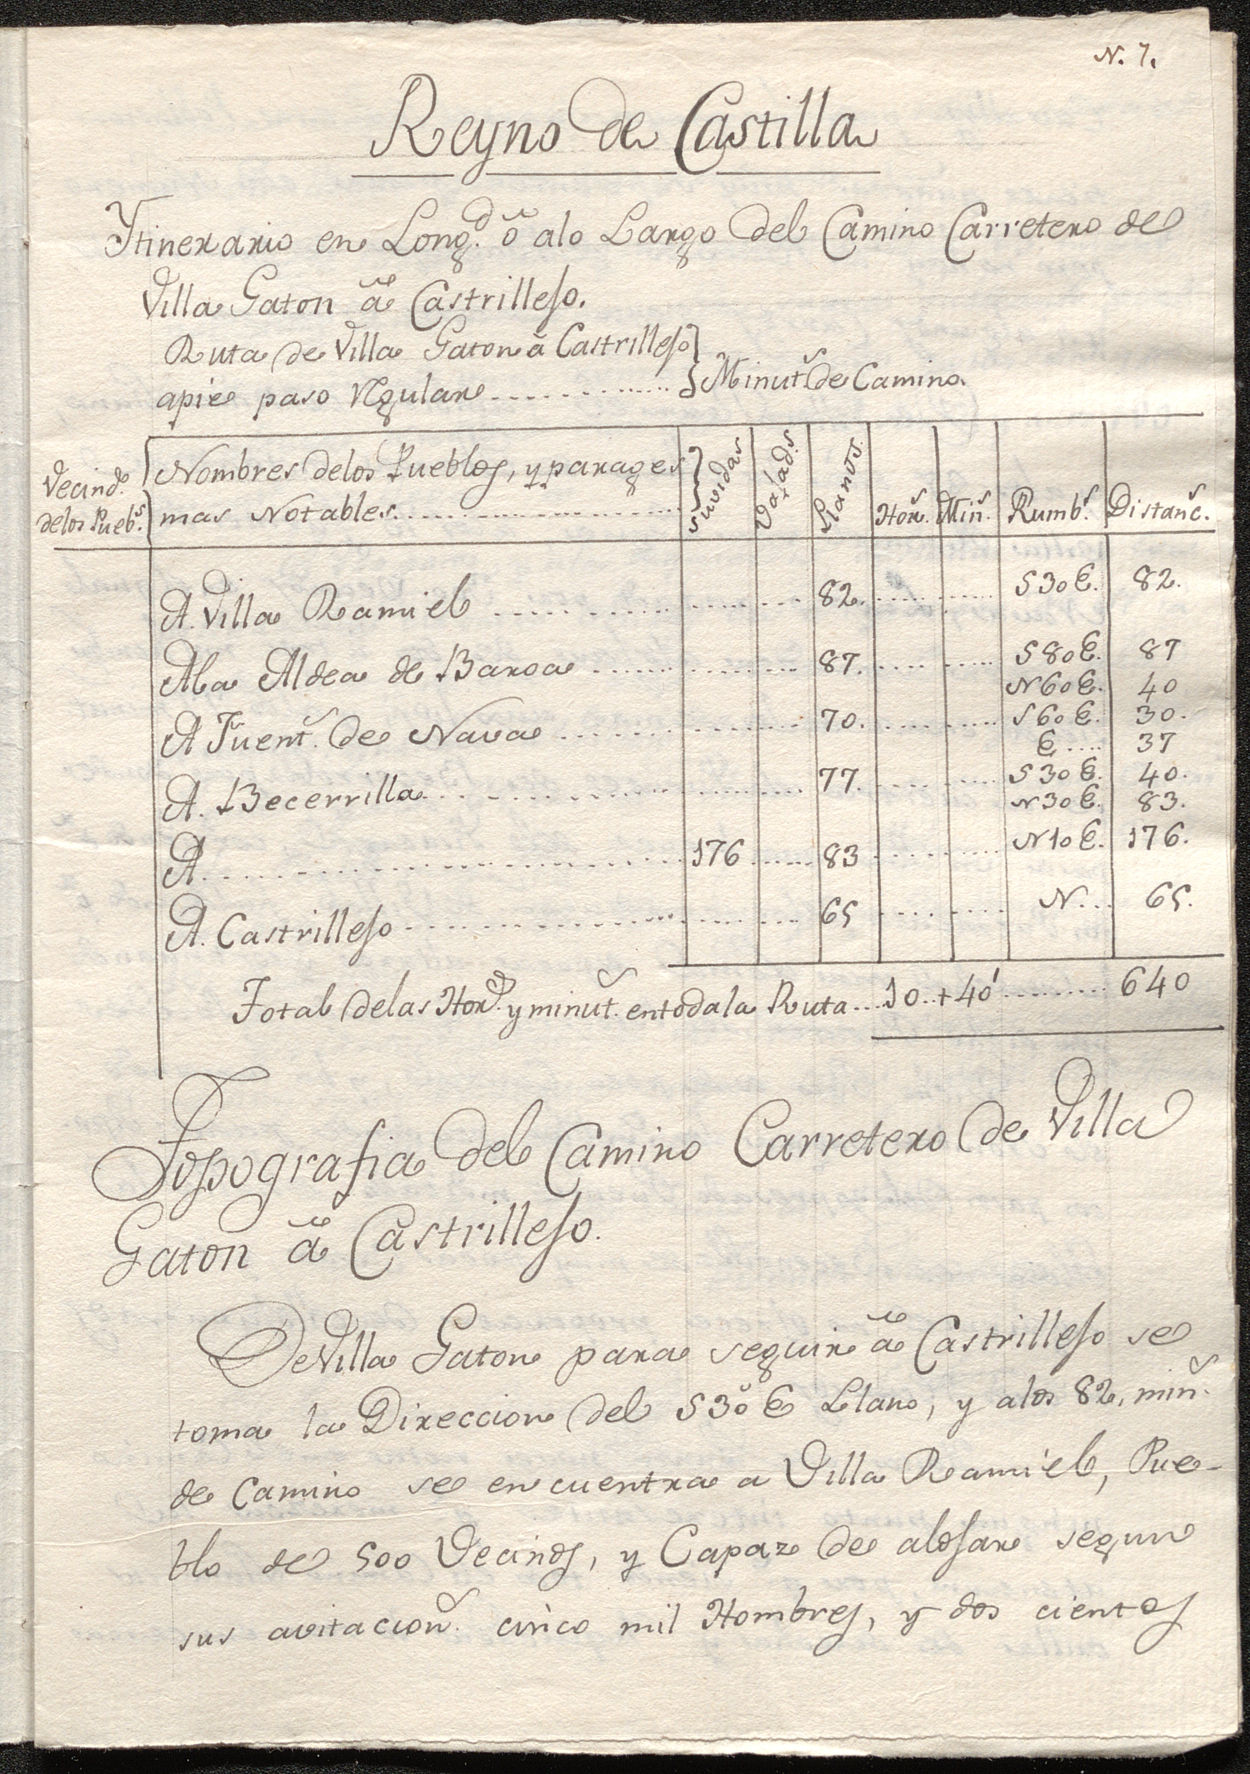 N. 7.
Reyno de Castilla
Ytinerario en Long.d ô alo Largo del Camino Carretero de
Villa Gaton â Castrillejo.
Ruta de Villa Gaton â Castrillejo
apie paso Regular ........... } Minut.s de Camino.
Vecind.o delos Pueb.s
Nombres delos Pueblos, y parages
mas Notables ........... Suvidas Vajad.s Llanos. Hor.s Min.s Rumb.s Distanc.s
A. Villa Ramiel ........... 82. ........... S 30 E. 82.
Ala Aldea de Baroa ........... 87. ........... S 80 E. 87
N 60 E. 40
A Fuent.s de Nava ........... 70. ........... S 60 E. 30.
E .... 37
A. Becerrilla ........... 77. ........... S 30 E. 40.
N 30 E. 83.
A ........... 176 ...... 83 ........... N 10 E. 176.
A. Castrillejo ........... 65 ........... N... 65.
Total delas Hor.s y minut.s entodala Ruta... 10..+40' ......... 640
Topografia del Camino Carretero de Villa
Gaton â Castrillejo.
De Villa Gaton para seguir â Castrillejo se
toma la Direccion del S 30 E Llano, y alos 82, min.s
de Camino se encuentra a Villa Ramiel, Pue-
blo de 500 Vecinos, y Capaz de alojar segun
sus avitacion.s cinco mil Hombres, y dos cientos